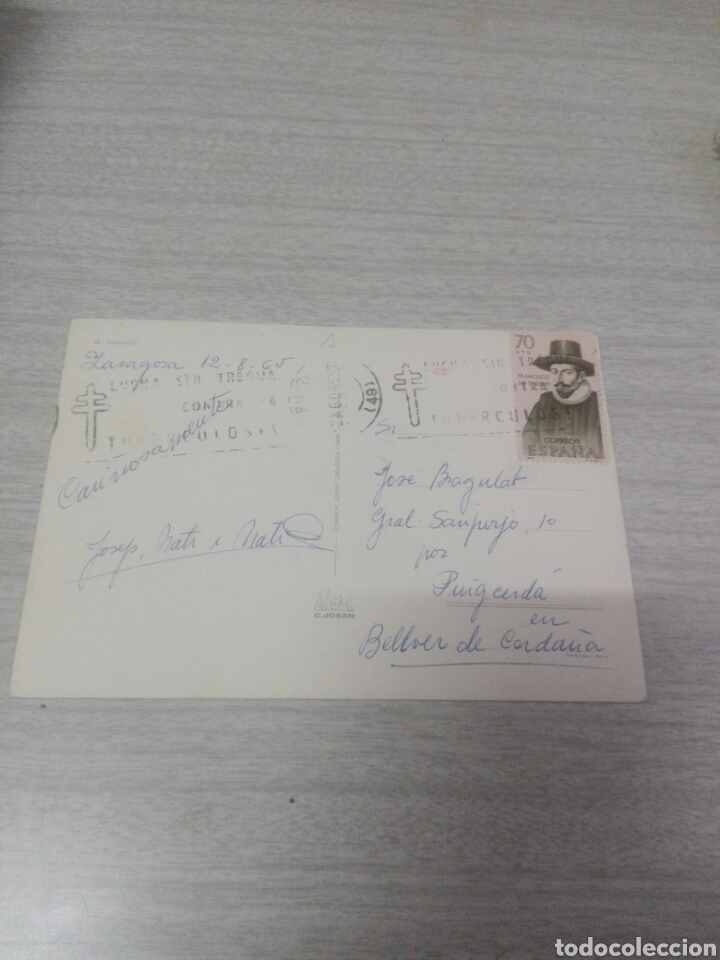 Zaragosa 12-8-65
LUCHA SIN TREGUA
CONTRA LA
TUBERCULOSIS
Cariñosamente
Josep, Nati i Nati
C. JOSAN
(49)
LUCHA SIN TRE
CONTRA
TUBERCULOSI
70
PTS
FRANCISCO
CORREOS
ESPAÑA
Sr.
José Bragulat
Gral. Sanjurjo, 10
por
Puigcerdá
en
Bellver de Cerdaña
todocoleccion